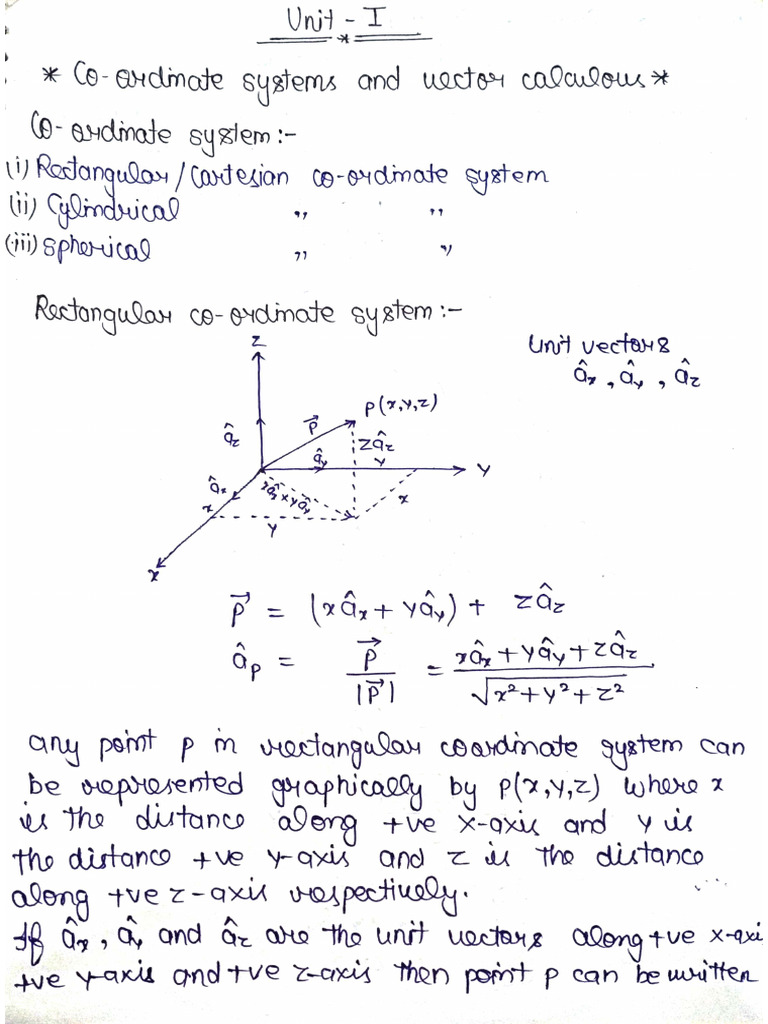 Unit - I
*
* Co-ordinate systems and vector calculous *
Co-ordinate system:-
(i) Rectangular/Cartesian co-ordinate system
(ii) Cylindrical ,, ,,
(iii) Spherical ,, ,,
Rectangular co-ordinate system:-
Unit vectors
âx , ây , âz
z
P(x,y,z)
P⃗
âz
zâz
ây
y
y
âx
xâx × yây
x
x
y
x
P⃗ = (xâx + yây) + zâz
âp = P⃗ / |P⃗| = xâx + yây + zâz / √x²+y²+z²
any point p in rectangular coordinate system can
be represented graphically by p(x,y,z) where x
is the distance along +ve x-axis and y is
the distance +ve y-axis and z is the distance
along +ve z-axis respectively.
If âx, ây and âz are the unit vectors along +ve x-axi
+ve y-axis and +ve z-axis then point p can be written